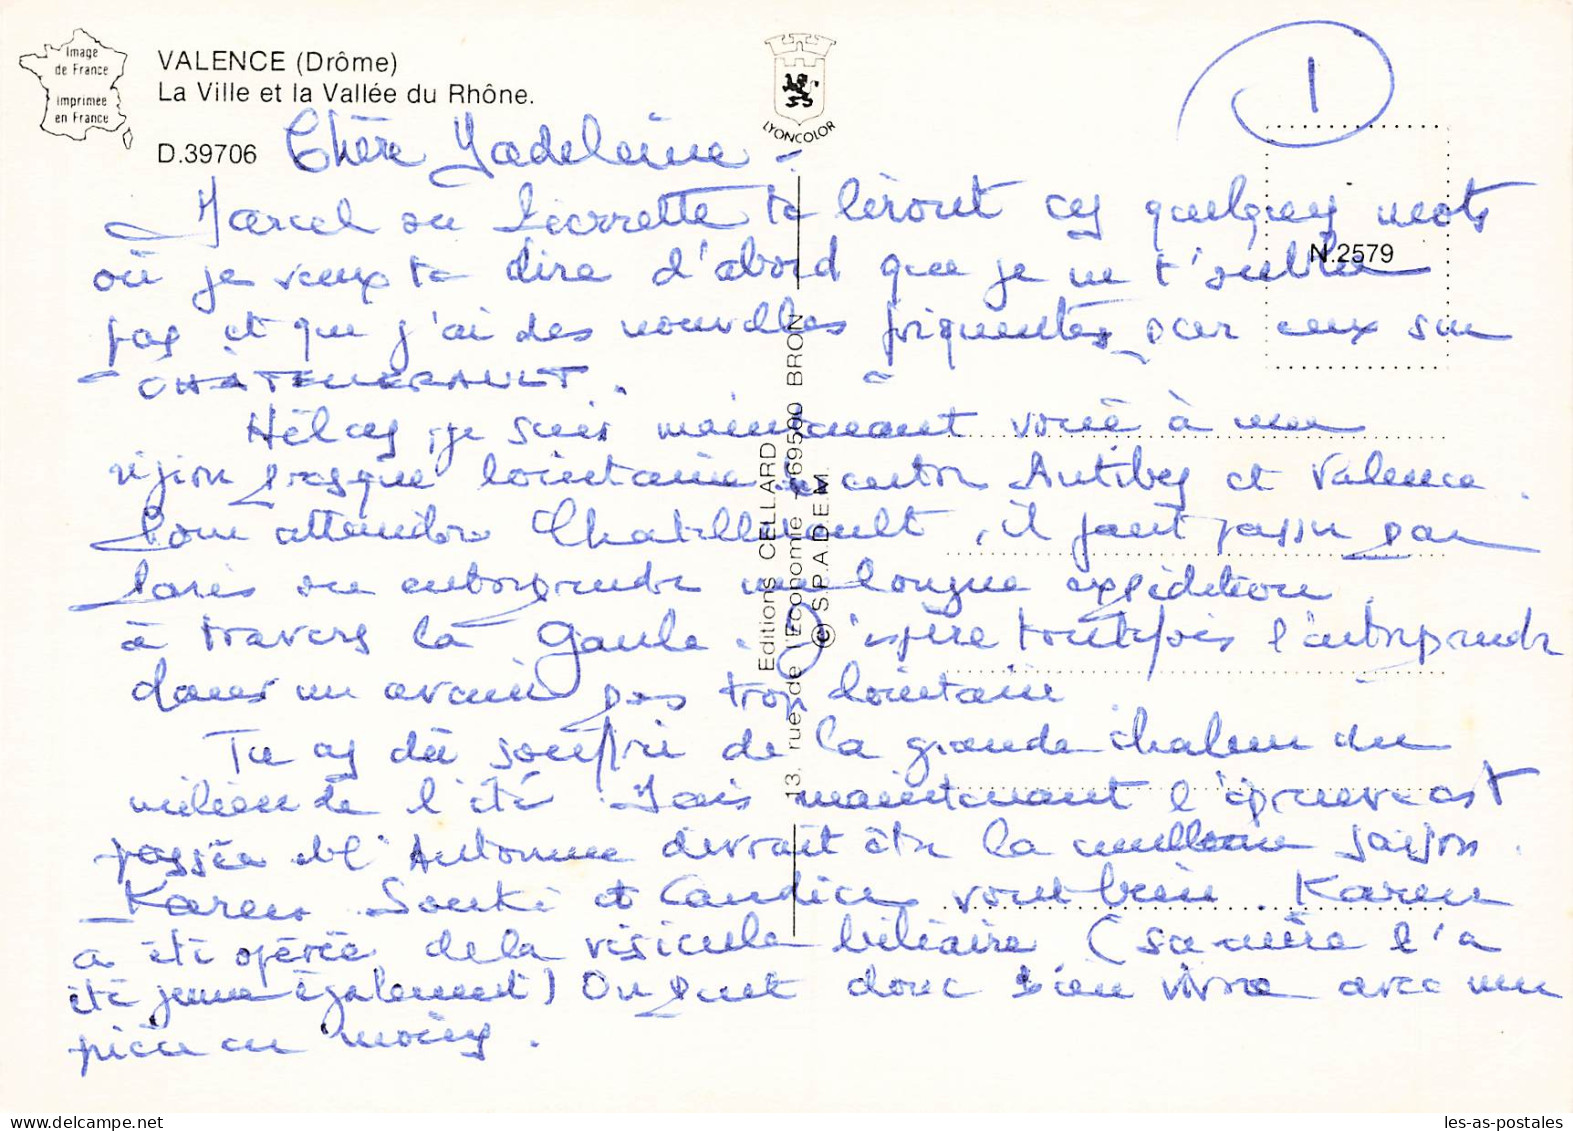 Image
de France
imprimée
en France
VALENCE (Drôme)
La Ville et la Vallée du Rhône.
D.39706
LYONCOLOR
1
N.2579
Editions CELLARD
13, rue de l'Economie - 69500 BRON
© S.P.A.D.E.M.
Chère Madeleine -
Marcel ou Pierrette te liront ces quelques mots
où je veux te dire d'abord que je ne t'oublie
pas et que j'ai des nouvelles fréquentes par ceux de
CHATELLERAULT.
Hélas, je suis maintenant voué à une
région presque lointaine entre Antibes et Valence.
Pour atteindre Chatellerault, il faut passer par
Paris ou entreprendre une longue expédition
à travers la Gaule. J'espère toutefois l'entreprendre
dans un avenir pas trop lointain
Tu as dû souffrir de la grande chaleur du
milieu de l'été. Mais maintenant l'épreuve est
passée et l'Automne devrait être la meilleure saison.
Karen et Candice vont bien. Karen
a été opérée de la vésicule biliaire (sa mère l'a
été jeune également) On peut donc bien vivre avec une
pièce en moins.
les-as-postales